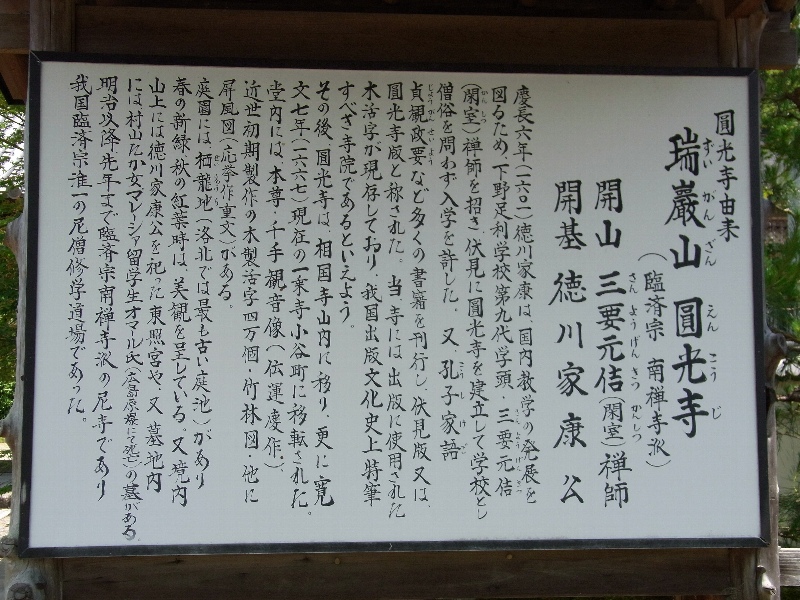 圓光寺由来
瑞巖山 圓光寺
ずい がん ざん えん こう じ
(臨済宗 南禅寺派)
開山 三要元佶(閑室)禅師
さん よう げん きつ かん しつ
開基 徳川家康公
慶長六年(一六〇一)徳川家康は、国内教学の発展を
図るため、下野足利学校第九代学頭・三要元佶
さんようげんきつ
(閑室)禅師を招き、伏見に圓光寺を建立して学校とし
かんしつ
僧俗を問わず入学を許した。又、孔子家語
こうしけご
貞観政要など多くの書籍を刊行し、伏見版又は、
じょうがんせいよう
圓光寺版と称された。当寺には出版に使用された
木活字が現存しており、我国出版文化史上特筆
すべき寺院であるといえよう。
その後、圓光寺は、相国寺山内に移り、更に寛
文七年(一六六七)現在の一乗寺小谷町に移転された。
堂内には、本尊・千手観音像(伝運慶作)、
近世初期製作の木製活字四万個・竹林図・他に
屏風図(応挙作重文)がある。
庭園には、栖龍池(洛北では最も古い庭池)があり
せいりゅうち
春の新緑・秋の紅葉時は、美観を呈している。又、境内
山上には徳川家康公を祀った東照宮や、又、墓地内
には、村山たか女マレーシア留学生オマール氏(広島原爆にて死亡)の墓がある。
明治以降先年まで臨済宗南禅寺派の尼寺であり
我国臨済宗唯一の尼僧修学道場であった。